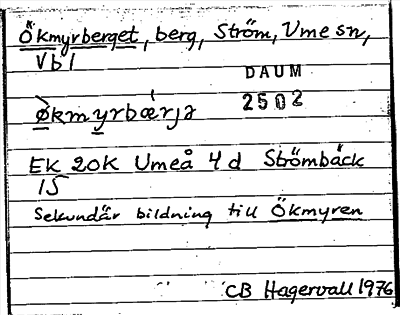 Ökmyrberget, berg, Ström, Ume sn,
Vb l
DAUM
2502
økmyrbærja
EK 20K Umeå 4 d Strömbäck
15
Sekundär bildning till Ökmyren
CB Hagervall 1976